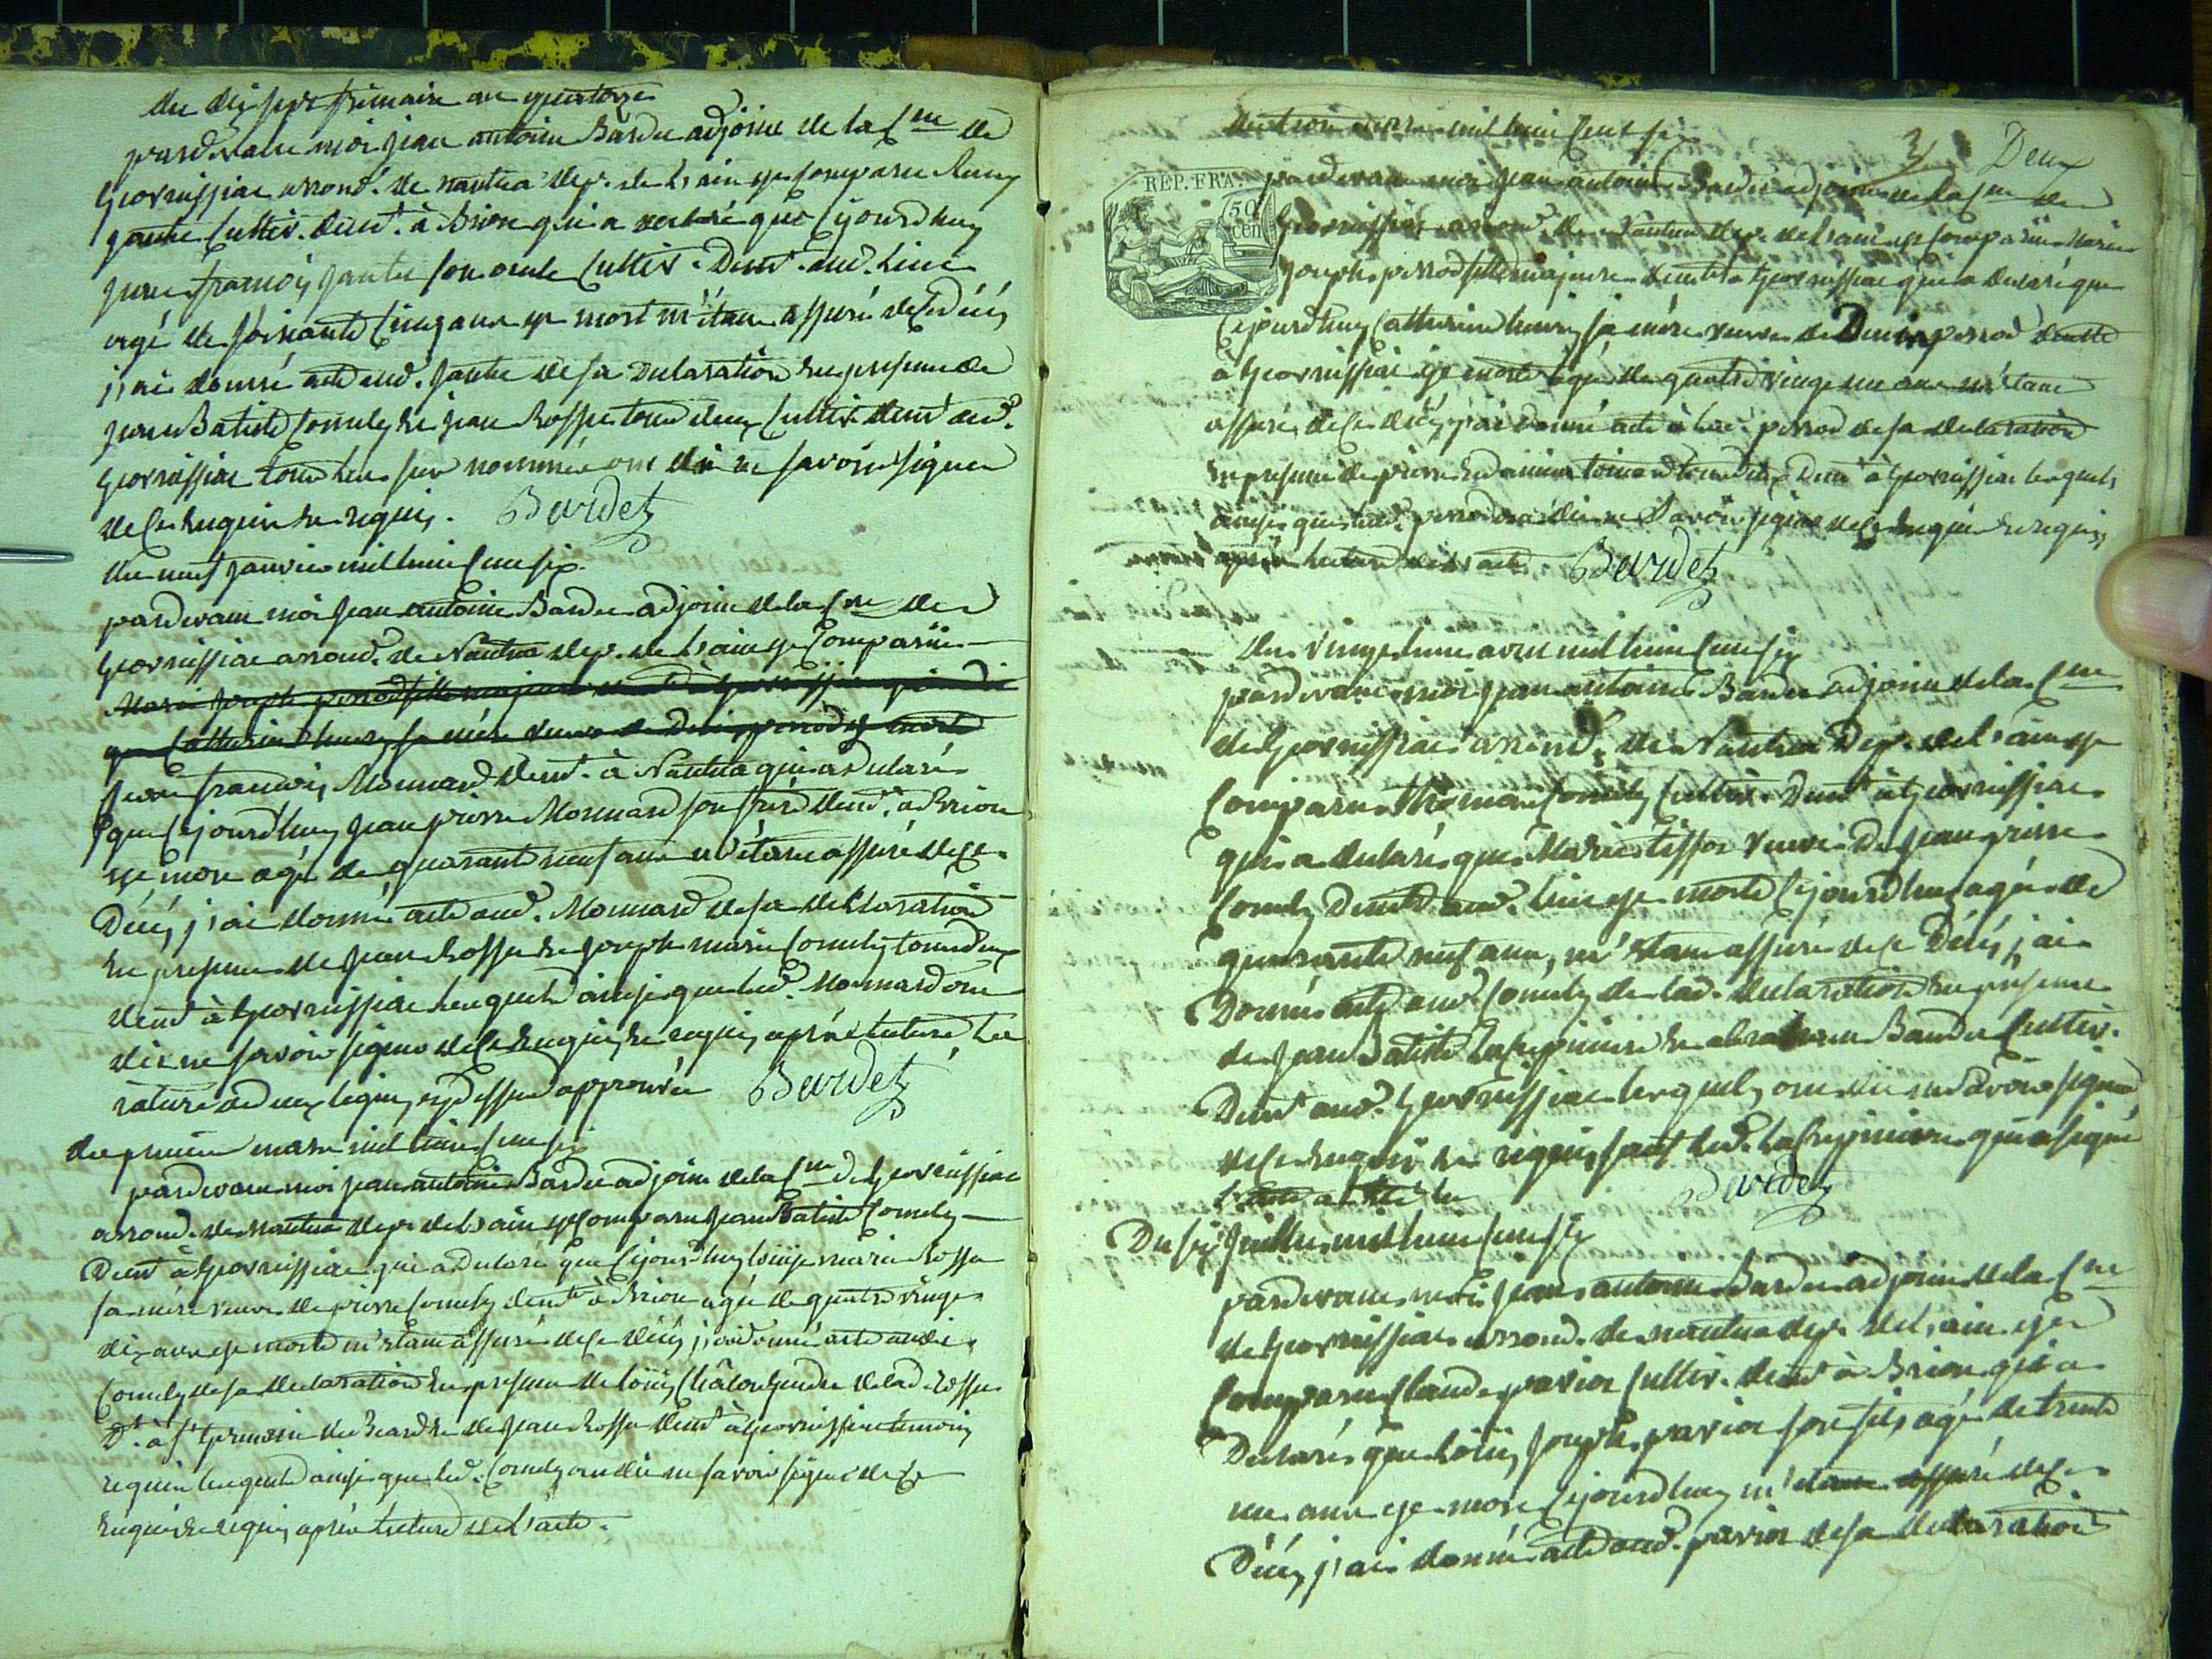 du dix sept frimaire an quatorze
pardevant moi jean antoine Bardet adjoint de la Cne de
Geovrissiac arrond.t de nantua dep.t de l'ain est Comparu
Jantet Cultiv. dem.t à Brion qui a declaré que Cejourdhuy
jean françois jantet son oncle Cultiv. Dem.t aud. Lieu
agé de soixante Cinq ans est mort m'étant assuré de ce décés
j'ai donné acte aud. Jantet de sa Declaration en presence de
jean Batiste Comely et jean Rosset tous deux Cultiv. dem.t aud.
Geovrissiac tous les sus nommés ont dit ne savoir signer
de ce enquis et requis. Bardet
du neuf janvier mil huit Cent six
pardevant moi jean antoine Bardet adjoint de la Cne de
Geovrissiac arrond.t de Nantua dep.t de l'ain est Comparu
Marie joseph perrod fille majeure
que Catherine henry sa mère veuve de Denis perrod est morte
françois Monnard dem.t à Nantua qui a declaré
que Cejourd'huy jean pierre Monnard son frère dem.t à Brion
est mort agé de quarante neuf ans m'étant assuré de ce
Décés j'ai donné acte aud. Monnard de sa declaration
en presence de jean Rosset et joseph marie Comely tous deux
dem.t à Geovrissiac lesquels ainsi que led. Monnard ont
dit ne savoir signer de ce enquis et requis après lecture, les
ratures a deux lignes cy dessus approuvées Bardet
du premier mars mil huit Cent six
pardevant moi jean antoine Bardet adjoint de la Cne de Geovrissiac
arrond. de nantua dep.t de l'ain est Comparu jean Batiste Comely
Dem.t à Geovrissiac qui a Declaré que Cejourdhuy Louise marie Rosset
sa mère veuve de pierre Comely dem.te à Brion agée de quatre vingt
dix ans est morte m'étant assuré de ce décés j'ai donné acte audit
Comely de sa declaration en presence de Louis Châlon gendre de lad. Rosset
D.t à S.t Germain de Beard et de jean Rosset dem.t à Geovrissiac temoins
requis lesquels ainsi que led. Comely ont dit ne savoir signer de ce
enquis et requis après lecture de l'acte.
du trois mars mil huit Cent six
3 Deux
REP. FRA.
50 cen
pardevant moi jean antoine Bardet adjoint de la Cne de
Geovrissiac arrond.t de Nantua dep.t de l'ain est Comparue Marie
joseph perrod fille majeure demte à Geovrissiac qui a declaré que
Cejourdhuy Catherine henry sa mère veuve de Denis perrod demte
à Geovrissiac est morte agée de quatre vingt un ans m'étant
assuré de ce décés j'ai donné acte à lad. perrod de sa declaration
en presence de pierre et tous deux Demt à Geovrissiac lesquels
ainsi que lad. perrod ont dit ne Savoir signer de ce enquis et requis
après lecture de l'acte Bardet
du Vingt huit avril mil huit Cent six
pardevant moi jean antoine Bardet adjoint de la Cne
de Geovrissiac arrond.t de Nantua Dep.t de l'ain est
Comparu Thomas Comely Cultiv. Demt à Geovrissiac
qui a declaré que Marie tissot Veuve De jean pierre
Comely Demte aud. lieu est morte Cejourdhuy agée de
quarante neuf ans, m'étant assuré de ce Décés j'ai
Donné acte aud. Comely de lad. declaration en presence
de jean Batiste Lacrepiniere et abraham Bardet Cultiv.
Demt aud. Geovrissiac lesquels ont dit ne Savoir signer
de ce enquis et requis sauf led. Lacrepiniere qui a signé
Bardet
Du six juillet mil huit Cent six
pardevant moi jean antoine Bardet adjoint de la Cne
de Geovrissiac arrond. de nantua dep.t de l'ain est
Comparu Claude pavion Cultiv. demt à Brion qui a
Declaré que Louis joseph pavion son fils agé de trente
un ans est mort Cejourdhuy m'étant assuré de ce
Décés j'ai donné acte aud. pavion de sa declaration